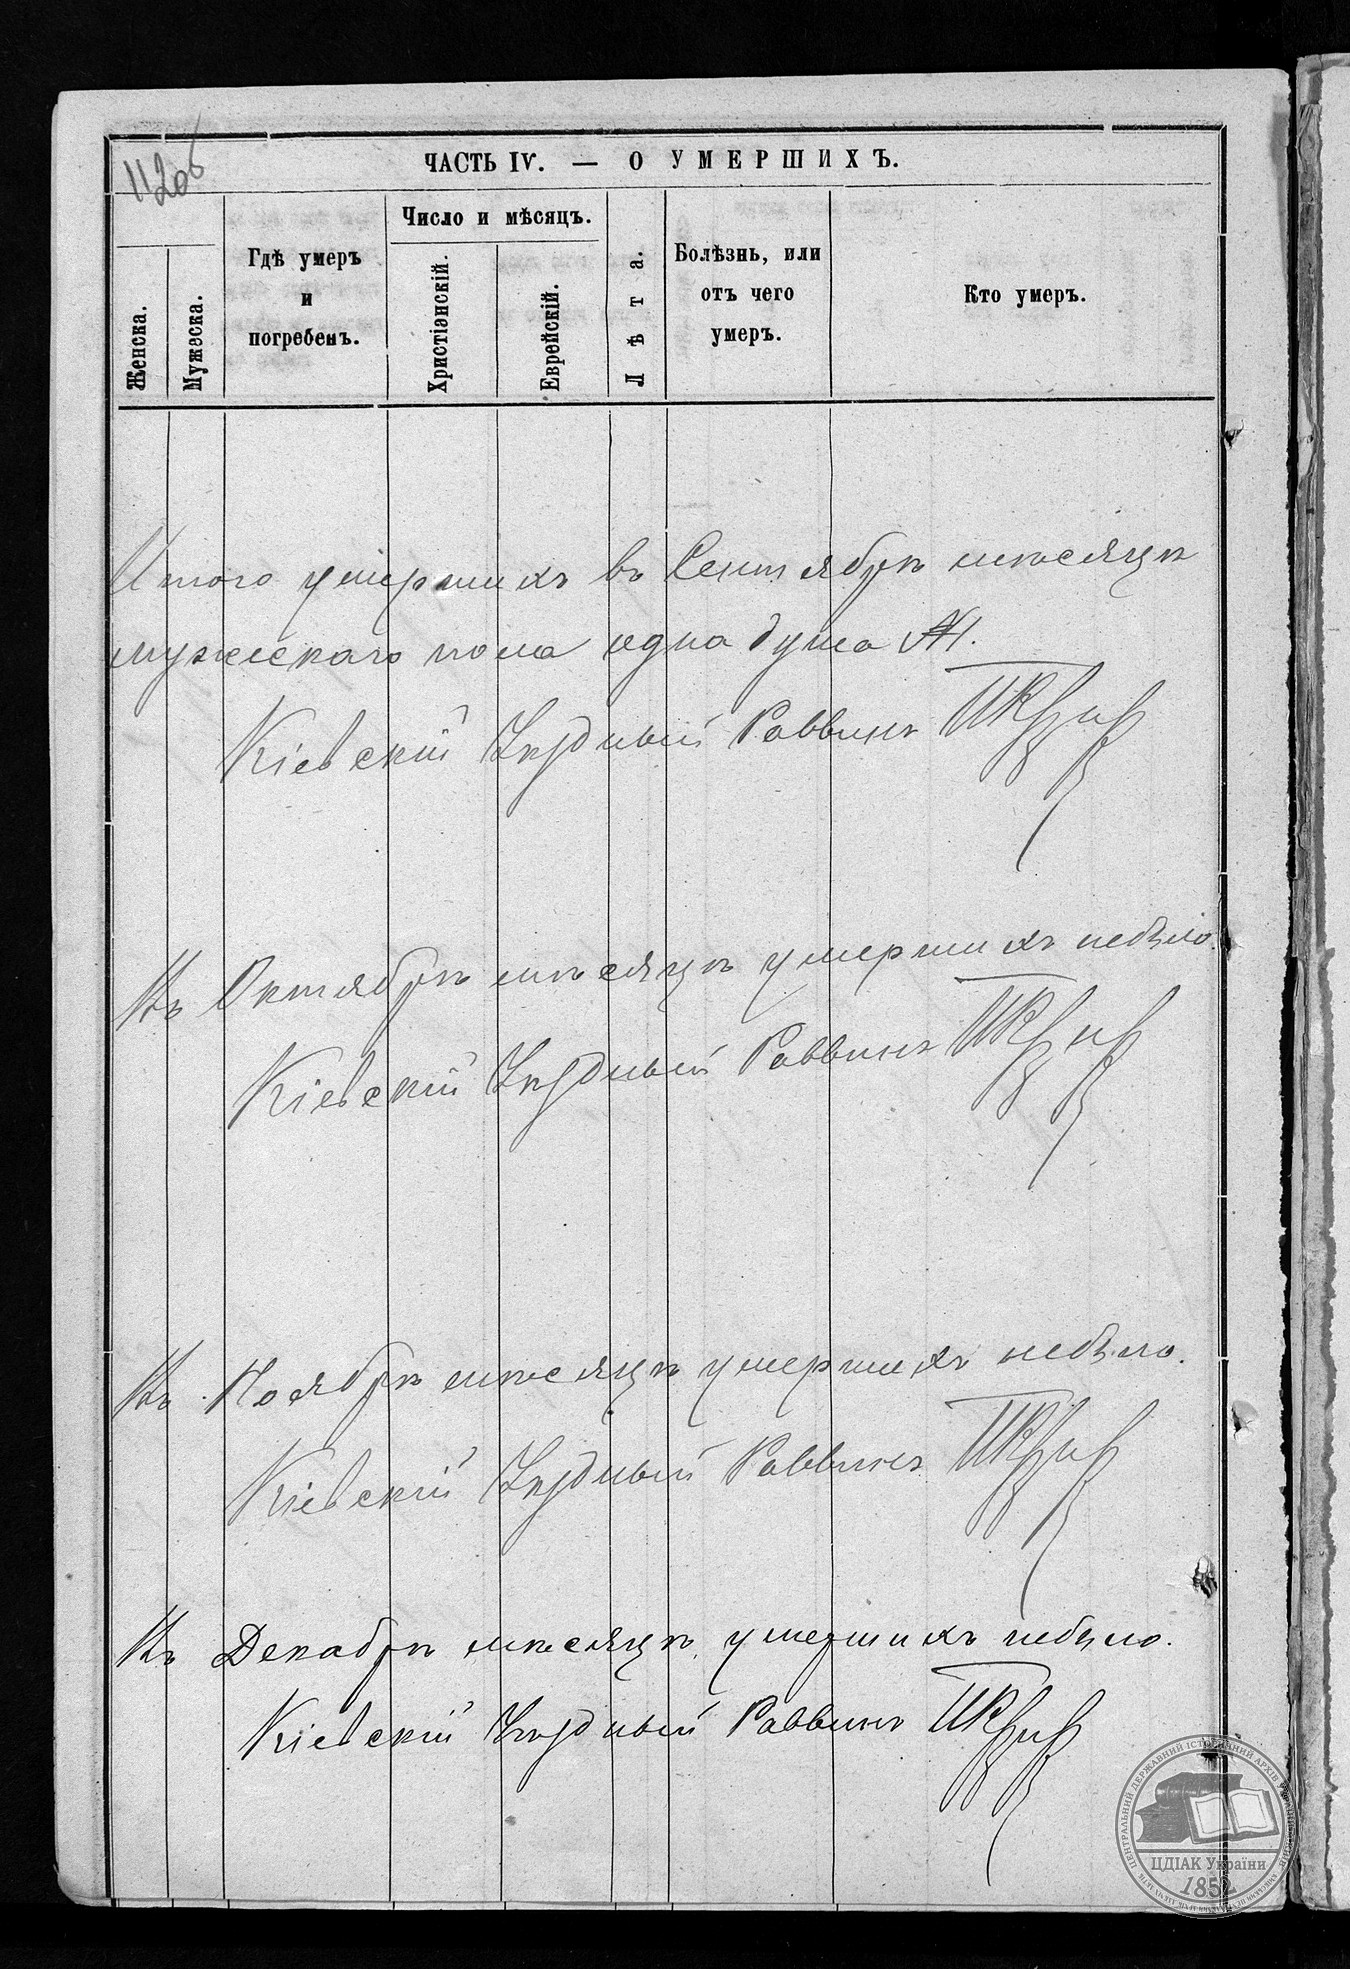 112об
ЧАСТЬ IV. — О УМЕРШИХЪ.
Женска.
Мужеска.
Гдѣ умеръ
и
погребенъ.
Число и мѣсяцъ.
Христіэнскій.
Еврейскій.
Лѣта.
Болѣзнь, или
отъ чего
умеръ.
Кто умеръ.
Итого умершихъ въ Сентябрѣ мѣсяцѣ
мужескаго пола одна душа №1.
Кіевскій Уѣздный Раввинъ
Въ Октябрѣ мѣсяцѣ умершихъ небыло.
Кіевскій Уѣздный Раввинъ
Въ Ноябрѣ мѣсяцѣ умершихъ небыло.
Кіевскій Уѣздный Раввинъ
Въ Декабрѣ мѣсяцѣ умершихъ небыло.
Кіевскій Уѣздный Раввинъ
ЦЕНТРАЛЬНИЙ ДЕРЖАВНИЙ ІСТОРИЧНИЙ АРХІВ УКРАЇНИ
ЦДІАК України
1852